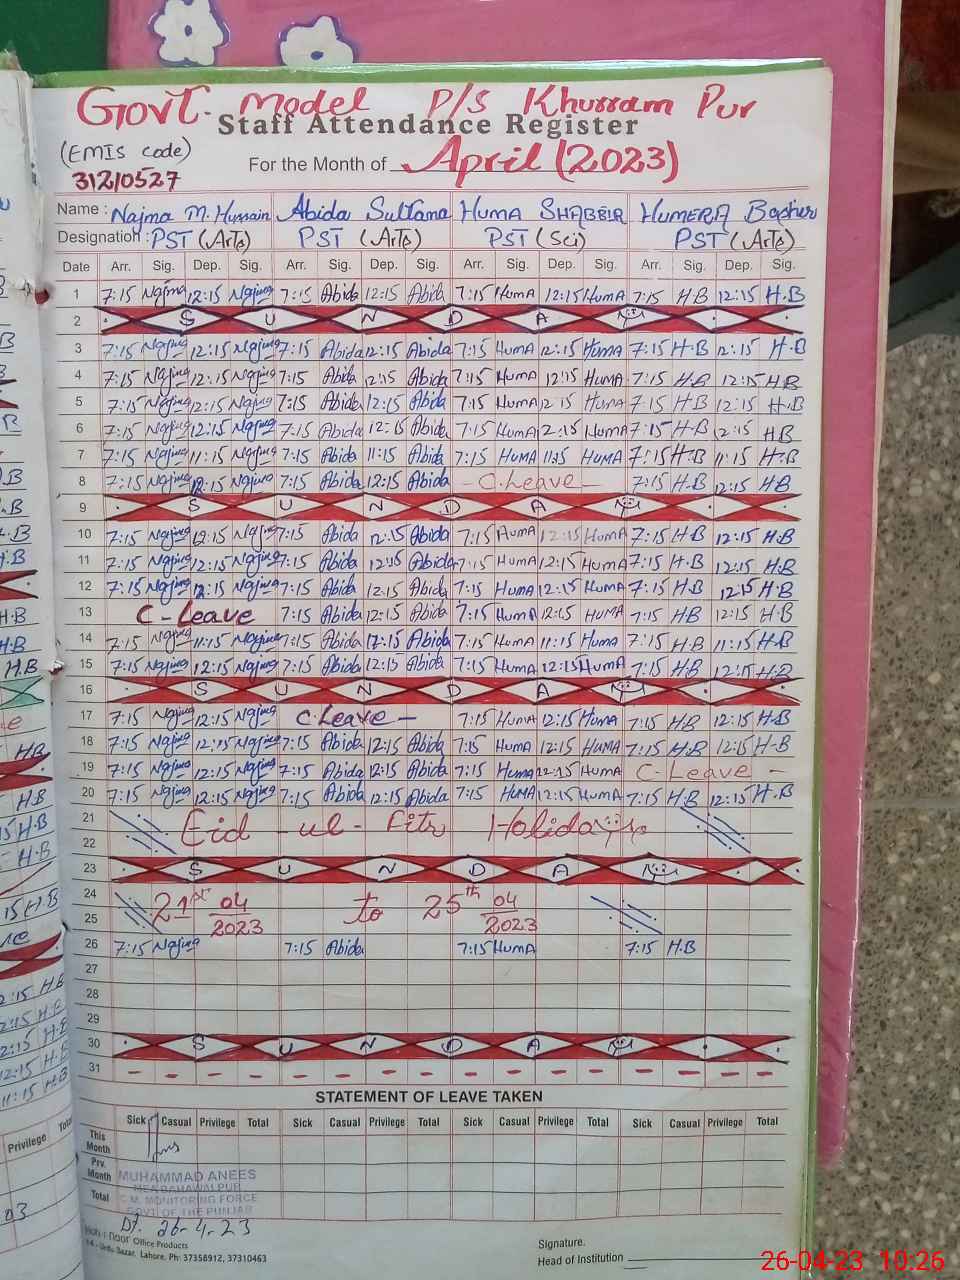 Govt. Model P/S Khurram Pur
Staff Attendance Register
(EMIS code)
31210527
For the Month of April (2023)
Name : Najma M. Hussain Abida Sultana HUMA SHABBIR HUMERA Bashir
Designation : PST (Arts) PST (Arts) PST (Sci) PST (Arts)
Date Arr. Sig. Dep. Sig. Arr. Sig. Dep. Sig. Arr. Sig. Dep. Sig. Arr. Sig. Dep. Sig.
1 7:15 Najma 12:15 Najma 7:15 Abida 12:15 Abida 7:15 HUMA 12:15 HUMA 7:15 H.B 12:15 H.B
2 S U N D A Y
3 7:15 Najma 12:15 Najma 7:15 Abida 12:15 Abida 7:15 HUMA 12:15 HUMA 7:15 H.B 12:15 H.B
4 7:15 Najma 12:15 Najma 7:15 Abida 12:15 Abida 7:15 HUMA 12:15 HUMA 7:15 H.B 12:15 H.B
5 7:15 Najma 12:15 Najma 7:15 Abida 12:15 Abida 7:15 HUMA 12:15 HUMA 7:15 H.B 12:15 H.B
6 7:15 Najma 12:15 Najma 7:15 Abida 12:15 Abida 7:15 HUMA 12:15 HUMA 7:15 H.B 12:15 H.B
7 7:15 Najma 11:15 Najma 7:15 Abida 11:15 Abida 7:15 HUMA 11:15 HUMA 7:15 H.B 11:15 H.B
8 7:15 Najma 12:15 Najma 7:15 Abida 12:15 Abida - C.Leave - 7:15 H.B 12:15 H.B
9 S U N D A Y
10 7:15 Najma 12:15 Najma 7:15 Abida 12:15 Abida 7:15 HUMA 12:15 HUMA 7:15 H.B 12:15 H.B
11 7:15 Najma 12:15 Najma 7:15 Abida 12:15 Abida 7:15 HUMA 12:15 HUMA 7:15 H.B 12:15 H.B
12 7:15 Najma 12:15 Najma 7:15 Abida 12:15 Abida 7:15 HUMA 12:15 HUMA 7:15 H.B 12:15 H.B
13 C-Leave 7:15 Abida 12:15 Abida 7:15 HUMA 12:15 HUMA 7:15 H.B 12:15 H.B
14 7:15 Najma 11:15 Najma 7:15 Abida 12:15 Abida 7:15 HUMA 11:15 Huma 7:15 H.B 11:15 H.B
15 7:15 Najma 12:15 Najma 7:15 Abida 12:15 Abida 7:15 HUMA 12:15 HUMA 7:15 H.B 12:15 H.B
16 S U N D A Y
17 7:15 Najma 12:15 Najma C.Leave - 7:15 HUMA 12:15 HUMA 7:15 H.B 12:15 H.B
18 7:15 Najma 12:15 Najma 7:15 Abida 12:15 Abida 7:15 HUMA 12:15 HUMA 7:15 H.B 12:15 H-B
19 7:15 Najma 12:15 Najma 7:15 Abida 12:15 Abida 7:15 Huma 12:15 HUMA C-Leave -
20 7:15 Najma 12:15 Najma 7:15 Abida 12:15 Abida 7:15 HUMA 12:15 HUMA 7:15 H.B 12:15 H.B
21 Eid - ul - Fitr Holidays
22
23 S U N D A Y
24 21st 04/2023 to 25th 04/2023
25
26 7:15 Najma 7:15 Abida 7:15 HUMA 7:15 H.B
27
28
29
30 S U N D A Y
31 - - - - - - - - - - - - - - - -
STATEMENT OF LEAVE TAKEN
Sick Casual Privilege Total Sick Casual Privilege Total Sick Casual Privilege Total Sick Casual Privilege Total
This Month
Prv. Month
Total
MUHAMMAD ANEES
MEA BAHAWALPUR
C.M. MONITORING FORCE
GOVT OF THE PUNJAB
Dt. 26-4-23
Koh-i-noor Office Products
Urdu Bazar, Lahore. Ph: 37358912, 37310463
Signature.
Head of Institution
26-04-23 10:26